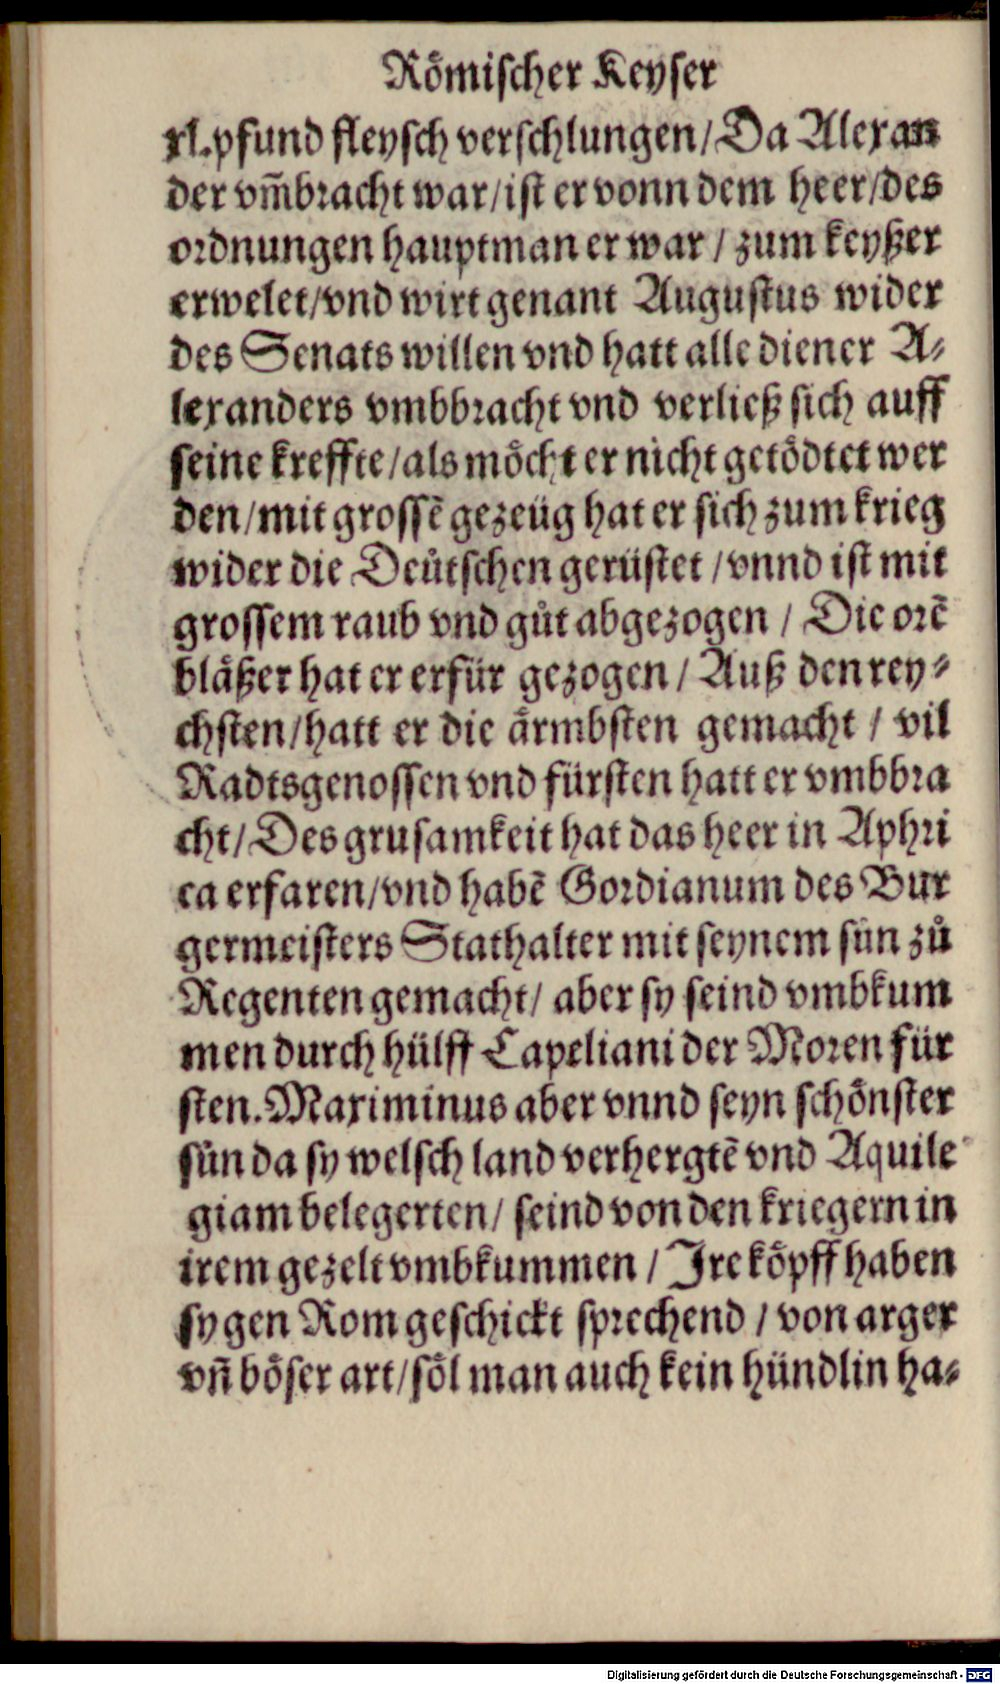 Roͤmischer Keyser
xl.pfund fleysch verschlungen/Da Alexan
der vm̃bracht war/ist er vonn dem heer/des
ordnungen hauptman er war / zum keyßer
erwelet/vnd wirt genant Augustus wider
des Senats willen vnd hatt alle diener A⸗
lexanders vmbbracht vnd verließ sich auff
seine kreffte/als moͤcht er nicht getoͤdtet wer
den/mit grossẽ gezeüg hat er sich zum krieg
wider die Deuͤtschen gerüstet /vnnd ist mit
grossem raub vnd guͦt abgezogen / Die orẽ
blaͤßer hat er erfür gezogen / Auß den rey⸗
chsten/hatt er die aͤrmbsten gemacht / vil
Radtsgenossen vnd fürsten hatt er vmbbra
cht/Des grusamkeit hat das heer in Aphri
ca erfaren/vnd habẽ Gordianum des Bur
germeisters Stathalter mit seynem sün zuͦ
Regenten gemacht/ aber sy seind vmbkum
men durch hülff Capeliani der Moren für
sten.Maximinus aber vnnd seyn schoͤnster
sün da sy welsch land verhergtẽ vnd Aquile
giam belegerten/ seind von den kriegern in
irem gezelt vmbkummen / Ire koͤpff haben
sy gen Rom geschickt sprechend / von arger
vñ boͤser art/soͤl man auch kein hündlin ha⸗
Digitalisierung gefördert durch die Deutsche Forschungsgemeinschaft - DFG